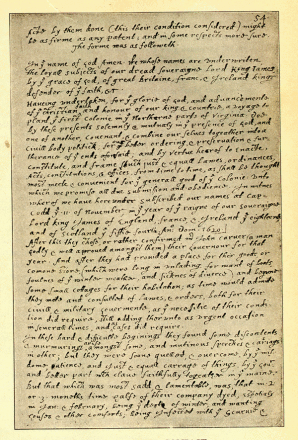 54
by them done (this their condition considered) might
be as firme as any patent, and in some respects more sure.
The forme was as followeth
In yᵉ name of god Amen. We whose names are underwriten,
the loyall subjects of our dread soveraigne Lord King James
by yᵉ grace of god, of great Britaine, franc, & Ireland king,
defender of yᵉ faith, &c
Haveing undertaken, for yᵉ glorie of god, and advancemente
of yᵉ christian and honour of our king & countrie, a voyage to
plant yᵉ first colonie in yᵉ Northerne parts of Virginia. Doe
by these presents solemnly & mutualy in yᵉ presence of god, and
one of another, covenant, & combine our selves togeather into a
civill body politick, for our better ordering, & preservation & fur-
therance of yᵉ ends aforesaid; and by vertue hearof to enacte,
constitute, and frame such just & equall lawes, ordinances,
Acts, constitutions, & offices, from time to time, as shall be thought
most meete & convenient for yᵉ generall good of yᵉ Colonie: unto
which we promise all due submission and obedience. In witnes
wherof we have hereunder subscribed our names at Cap-
Codd yᵉ 11 of November, in yᵉ year of yᵉ raigne of our soveraigne
Lord king James of England, franc, & Ireland yᵉ eighteenth
and of Scotland yᵉ fiftie fourth. An: Dom. 1620
After this they chose, or rather confirmed mr John Carver (a man
godly & well approved amongst them) their Governour for that
year. And after they had provided a place for their goods or
comone store, (which were long in unlading for want of boats,
foulnes of yᵉ winter weather, and sicknes of diverce) and begune
some small cottages for their habitation; as time would admitte
they mette and consulted of lawes, & orders, both for their
civill & military Govermente, as yᵉ necessitie of their condi-
tion did require, still adding therunto as urgent occasion
in severall times, and as cases did require.
In these hard & difficulte beginings they found some discontents
& murmurings arise amongst some, and mutinous speeches & cariages
in other; but they were soone quelled, & overcome, by yᵉ wis-
dome, patience, and just & equall carrage of things, by yᵉ Govʳ
and better part wᶜʰ clave faithfully togeather in yᵉ maine.
But that which was most sadd, & lamentable, was, that in 2
or 3 moneths time halfe of their company dyed, espetialy
in Jan: & february, being yᵉ depth of winter, and wanting
houses & other comforts; being infected with yᵉ scurvie &